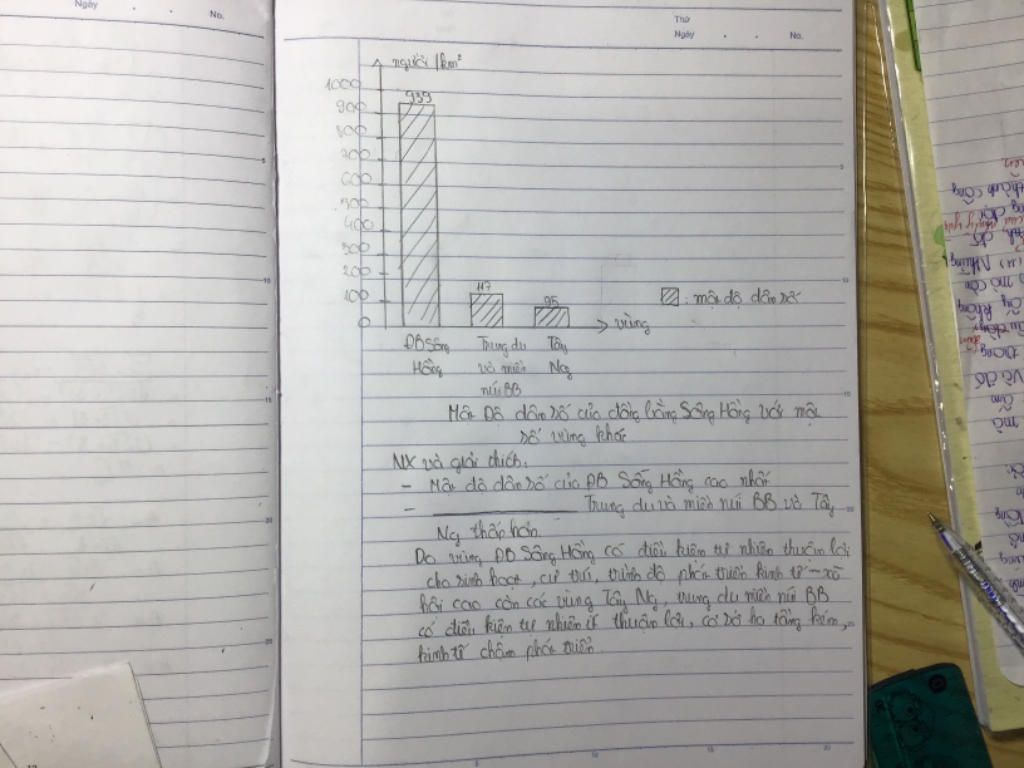 Ngày No.
Thứ
Ngày . . No.
người /km²
1000
900
800
700
600
500
400
300
200
100
0
939
117
95
: mật độ dân số
vùng
ĐB Sông Hồng
Trung du và miền núi BB
Tây Ng
Mật Độ dân số của đồng bằng Sông Hồng với một
số vùng khác
NX và giải thích:
- Mật độ dân số của ĐB Sông Hồng cao nhất
- Trung du và miền núi BB và Tây
Ng thấp hơn.
Do vùng ĐB Sông Hồng có điều kiện tự nhiên thuận lợi
cho sinh hoạt, cư trú, trình độ phát triển kinh tế - xã
hội cao còn các vùng Tây Ng, trung du miền núi BB
có điều kiện tự nhiên ít thuận lợi, cơ sở hạ tầng kém,
kinh tế chậm phát triển.